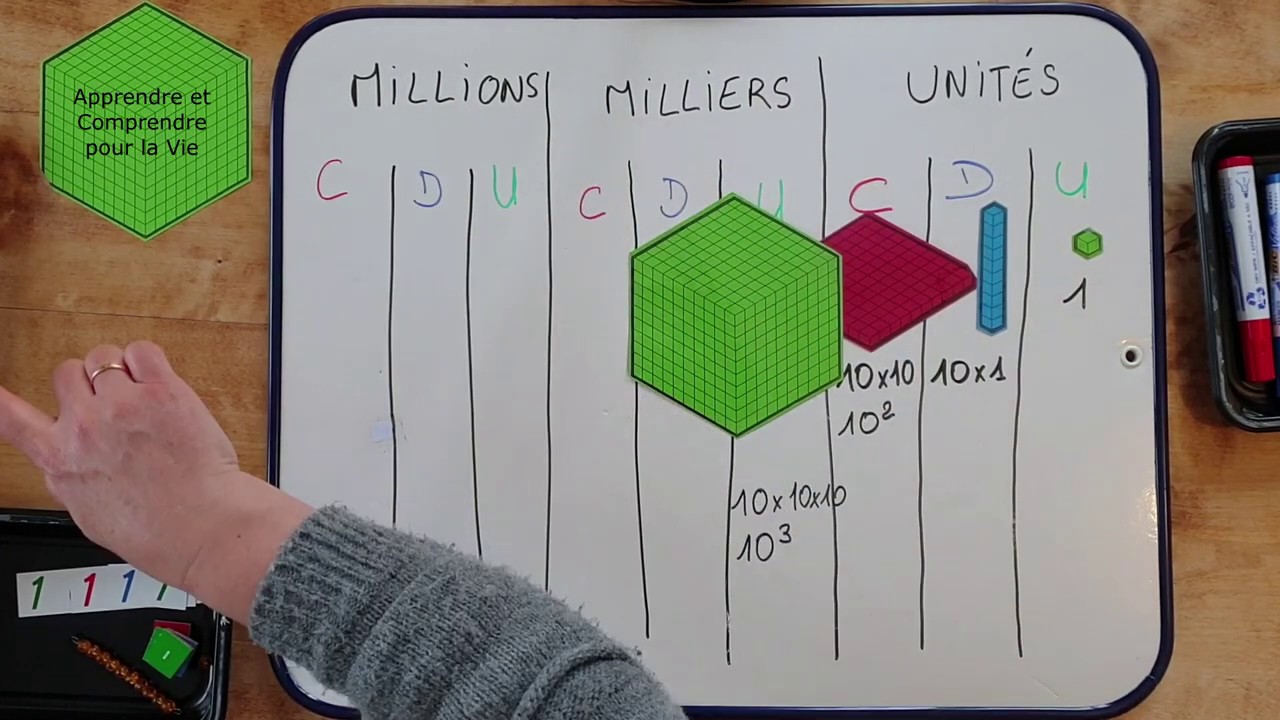 Apprendre et
Comprendre
pour la Vie
MiLLiONS MiLLiERS UNITÉS
C D U C D U C D U
1
10x10 10x1
10²
10x10x10
10³
1 1 1 1